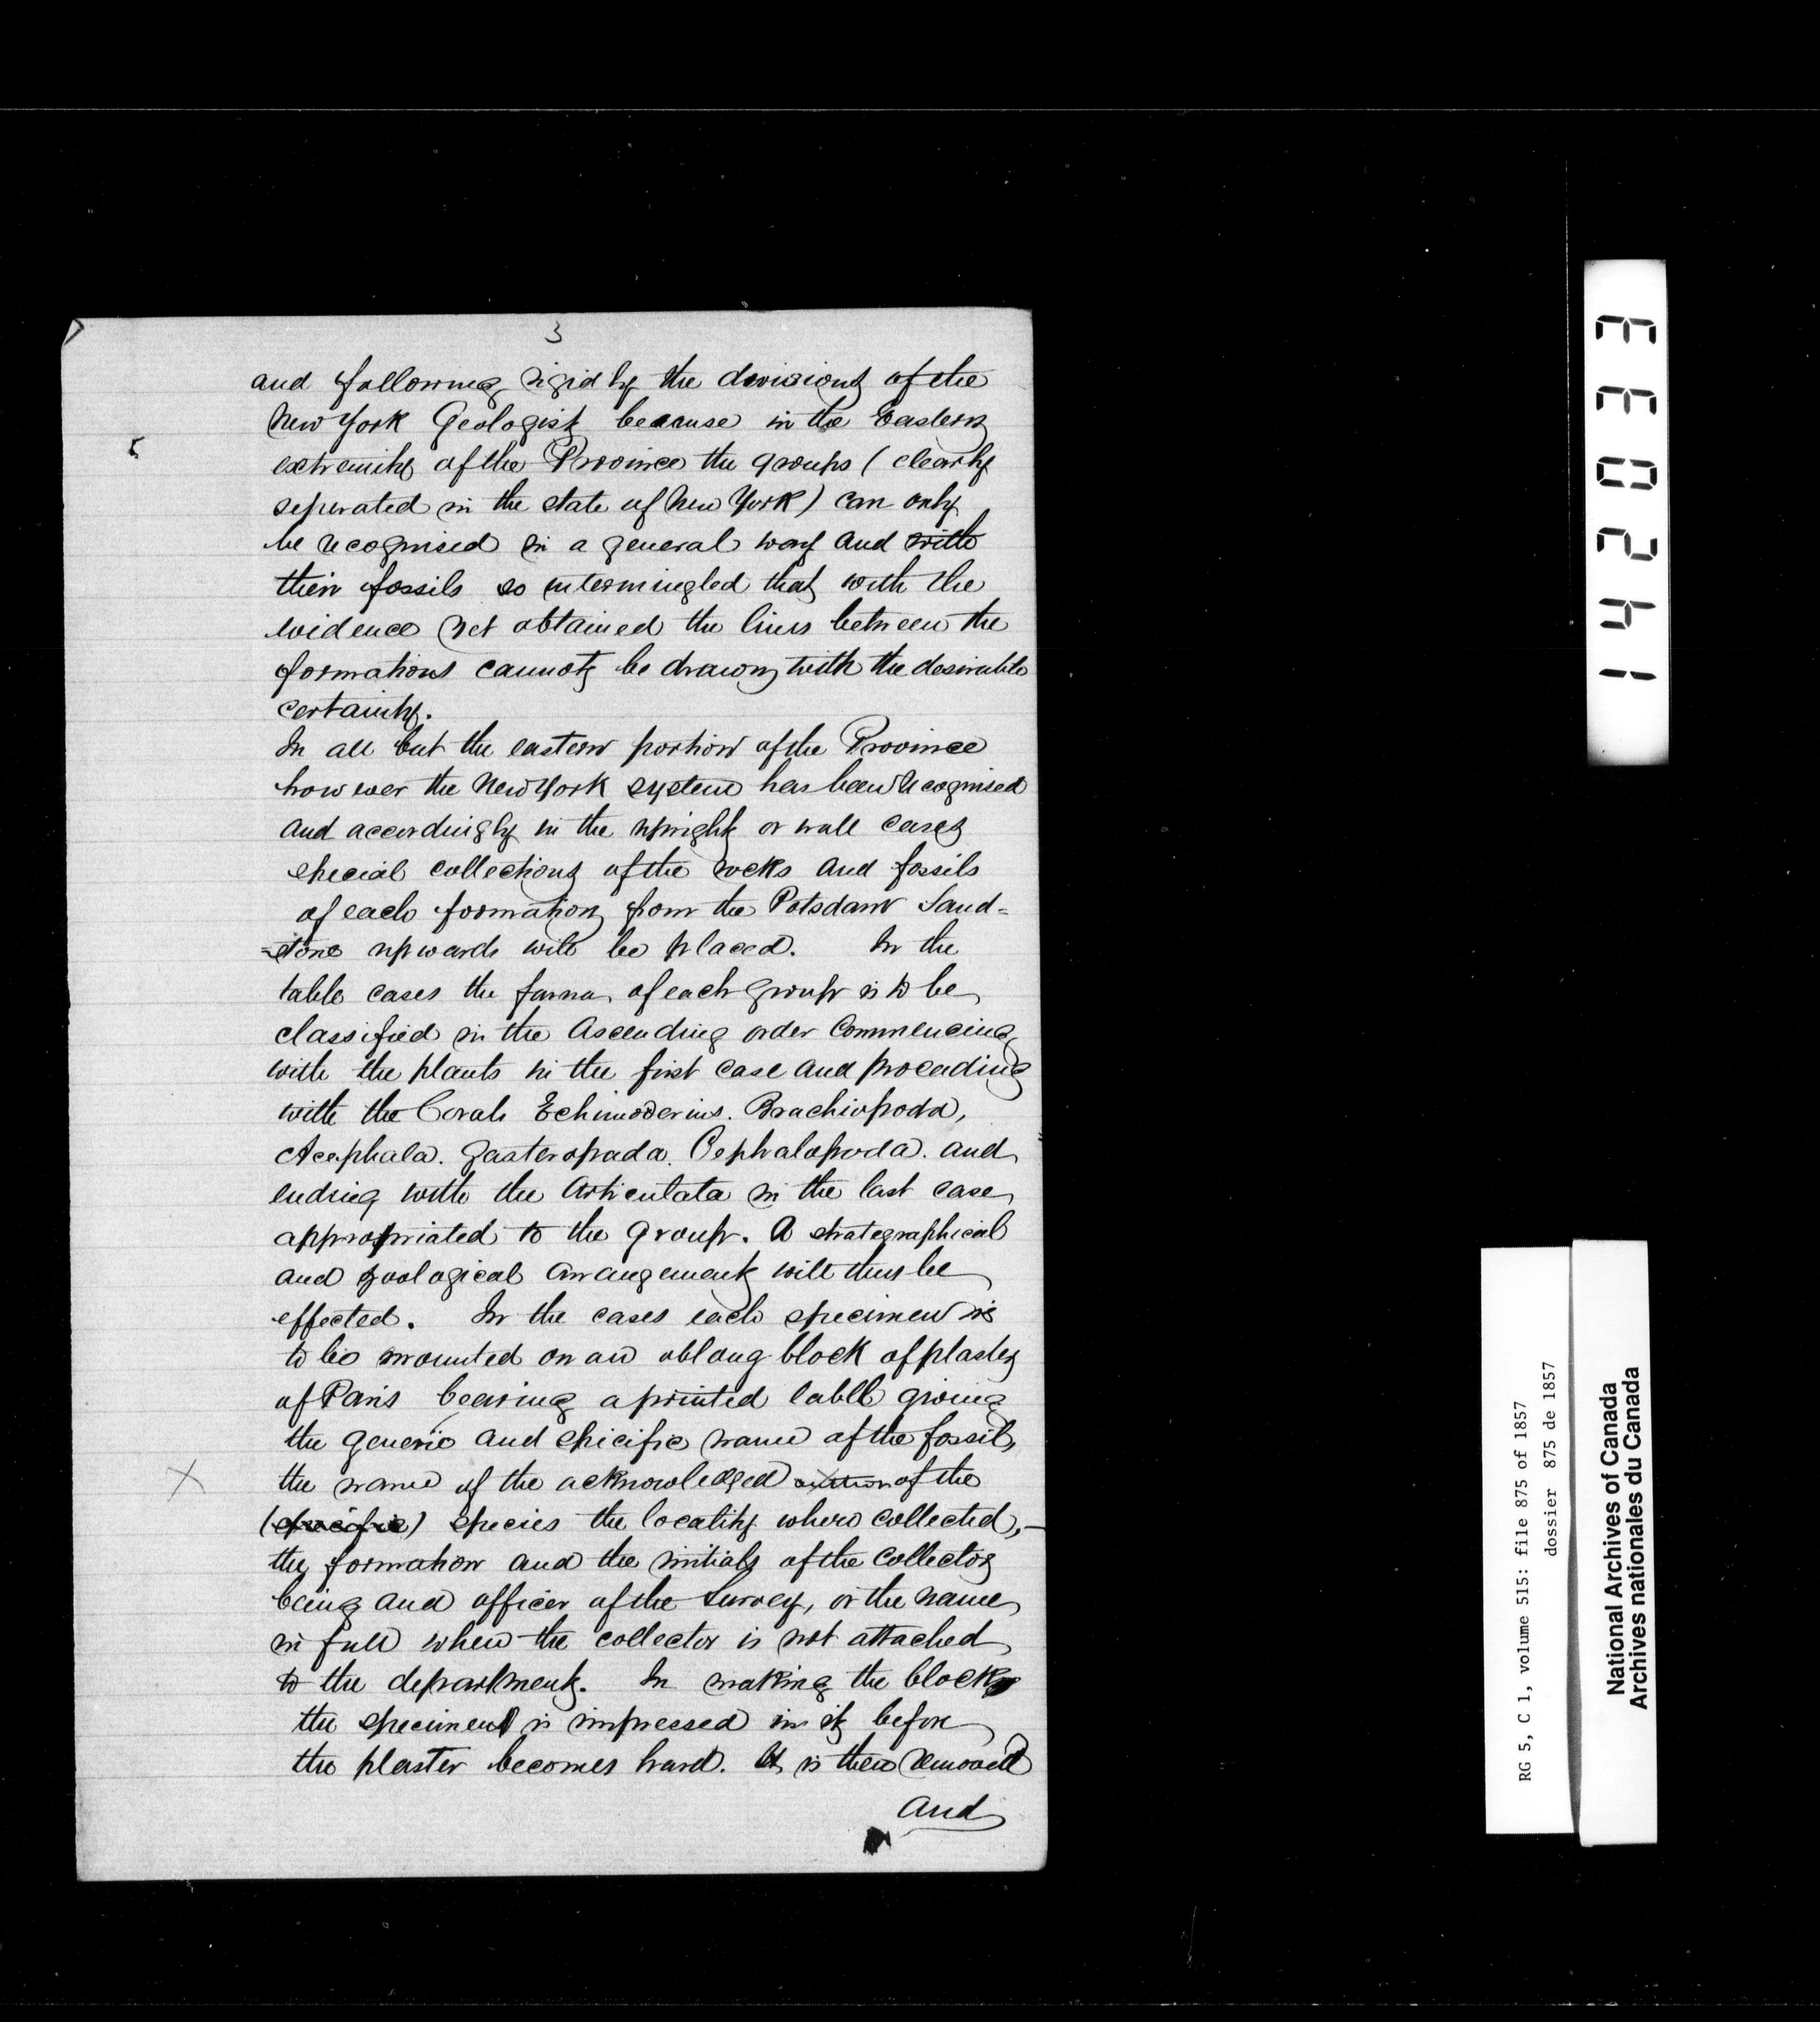 3
and following rigidly the divisions of the
New York Geologist because in the Eastern
extremity of the Province the groups (clearly
seperated in the state of New York) can only
be recognised in a general way and with
their fossils so intermingled that with the
evidence yet obtained the lines between the
formations cannot be drawn with the desirable
certainty.
In all but the eastern portion of the Province
however the New York system has been recognised
and accordingly in the upright or wall cases
special collections of the rocks and fossils
of each formation from the Potsdam Sand=
=stone upwards will be placed. In the
table cases the fauna of each group is to be
classified in the ascending order Commencing
with the plants in the first case and proceading
with the Corals Echinoderms. Brachiopoda,
Acephala. Gasteropada. Cephalopoda. and
ending with the Articulata in the last case
appropriated to the group. A strategraphical
and zoological arrangement will thus be
effected. In the cases each specimen is
to be mounted on an oblong block of plaster
of Paris bearing a printed labll giving
the generic and specific name of the fossil,
the name of the acknowledged author of the
(specific) species the locality where collected,—
the formation and the initials of the collector
being and officer of the Survey, or the name
in full when the collector is not attached
to the department. In making the block
the specimen is impressed in it before
the plaster becomes hard. It is then removed
and
142033
RG 5, C 1, volume 515: file 875 of 1857
dossier 875 de 1857
National Archives of Canada
Archives nationales du Canada